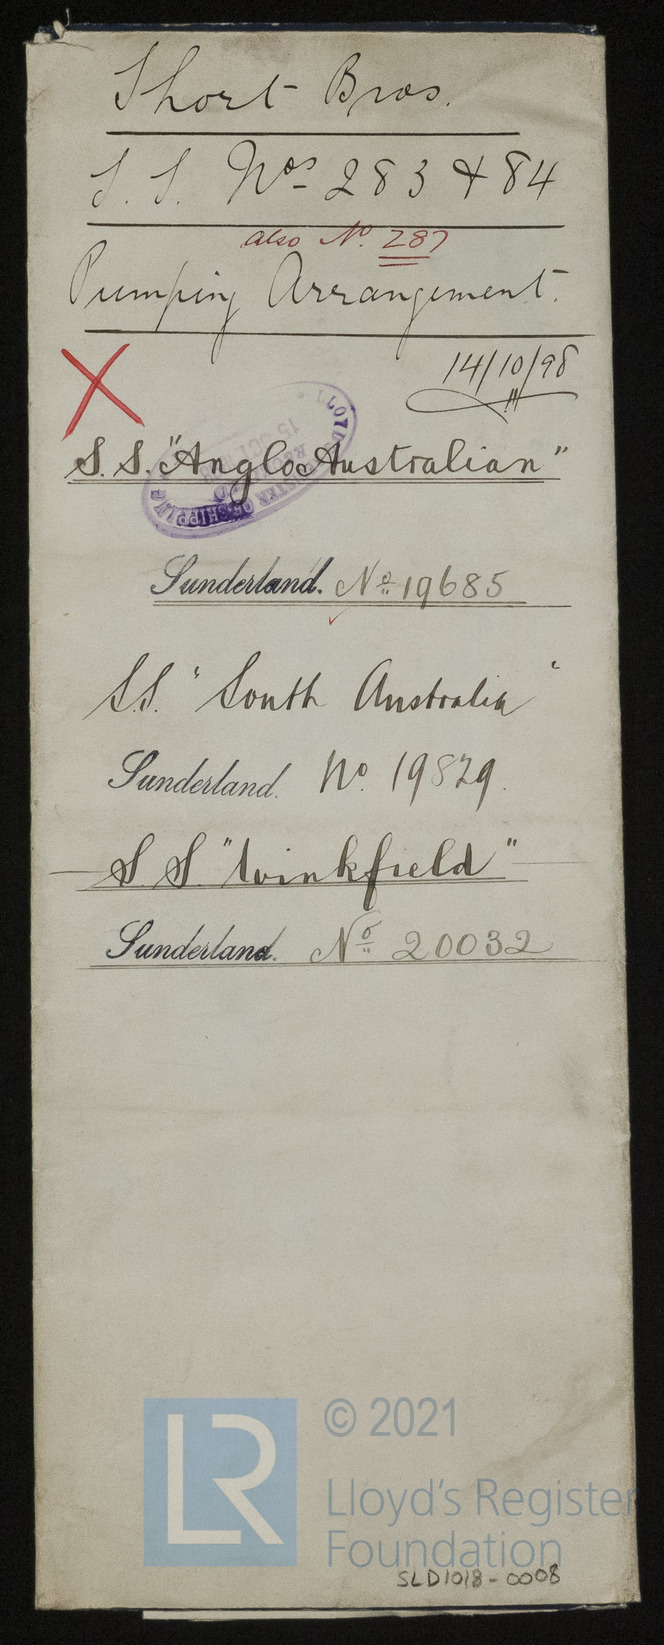 Short Bros.
S. S. Nos 283 & 84
also No. 287
Pumping Arrangement.
14/10/98
S. S. "Anglo Australian"
LLOYD'S REGISTER OF SHIPPING
15 OCT
Sunderland. No 19685
S.S. "South Australia"
Sunderland. No. 19829.
S. S. "Winkfield"
Sunderland. No 20032
LR
© 2021
Lloyd's Register
Foundation
SLD1018-0008